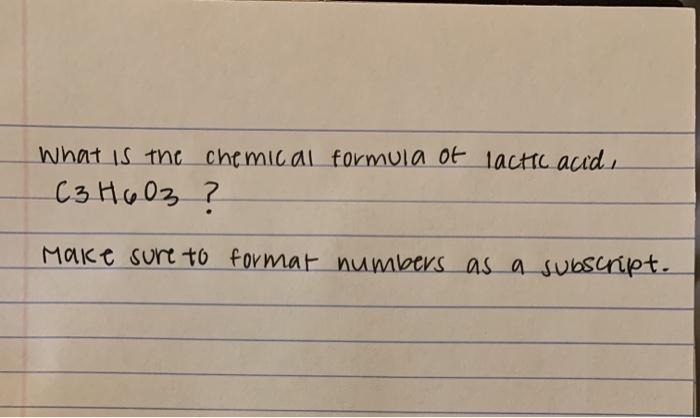 What is the chemical formula of lactic acid,
C3H6O3 ?
Make sure to format numbers as a subscript.